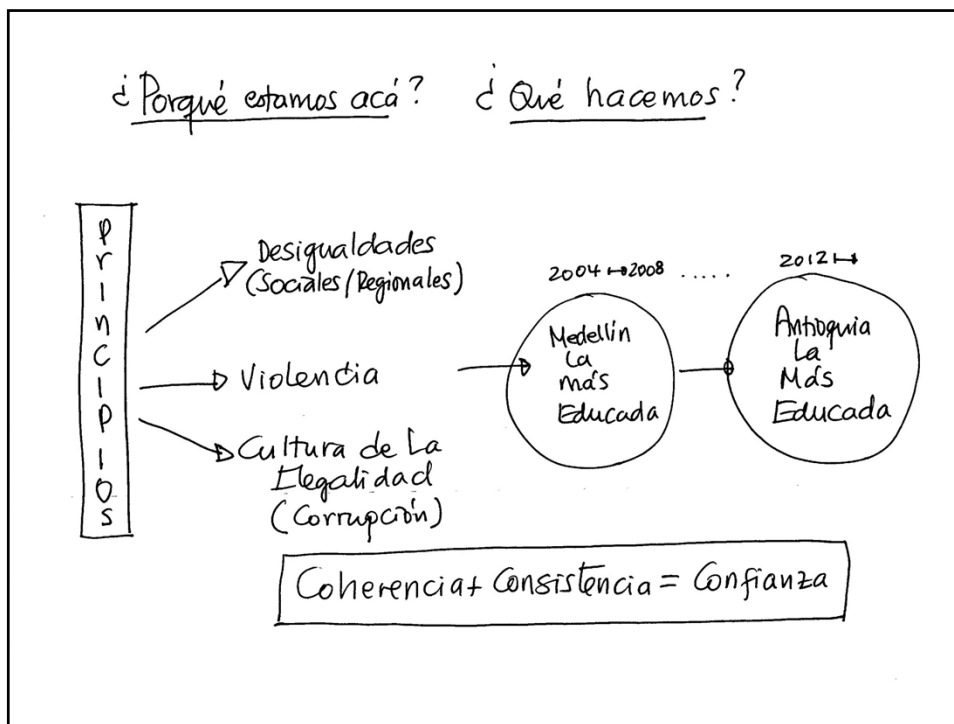 ¿Porqué estamos acá? ¿Qué hacemos?
PrINCIPIOS
Desigualdades
(Sociales/Regionales)
Violencia
Cultura de La
Ilegalidad
(Corrupción)
2004 ↦ 2008 .....
Medellín
La
más
Educada
2012 ↦
Antioquia
La
Más
Educada
Coherencia + Consistencia = Confianza